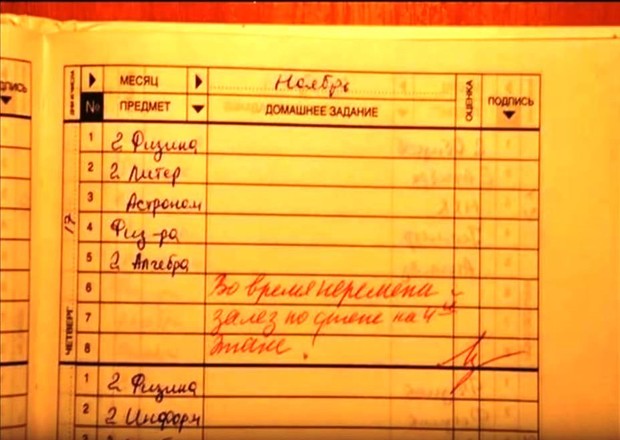 МЕСЯЦ Ноябрь
№ ПРЕДМЕТ ДОМАШНЕЕ ЗАДАНИЕ ОЦЕНКА ПОДПИСЬ
1 2 Физика
2 2 Литер
3 Астроном
4 Физ-ра
5 2 Алгебра
6 Во время перемена
7 залез по стене на 4-ый
8 этаж.
ЧЕТВЕРГ 17
1 2 Физика
2 2 Информ